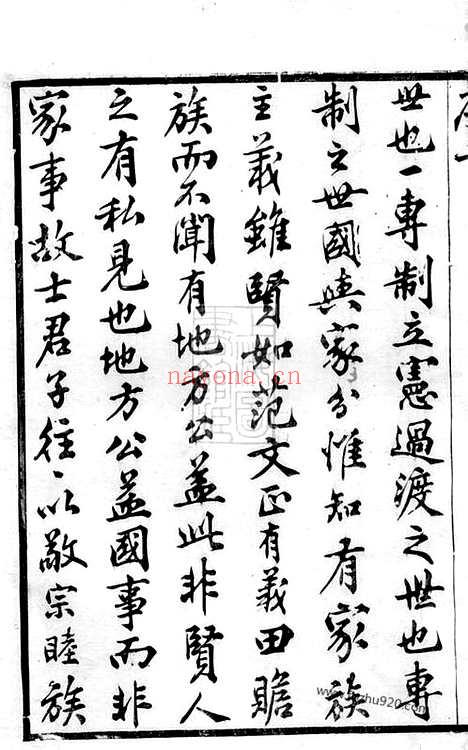 世也一專制立憲過渡之世也專
制之世國與家分惟知有家族
主義雖賢如范文正有義田贍
族而不聞有地方公益此非賢人
之有私見也地方公益國事而非
家事故士君子往〻以敬宗睦族
nayona.cn